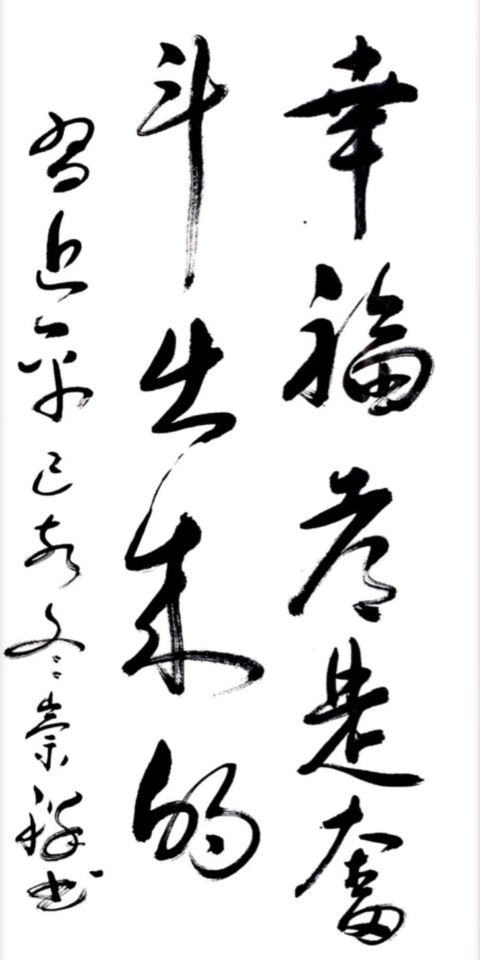 幸福都是奋
斗出来的
习近平己亥冬崇祥书